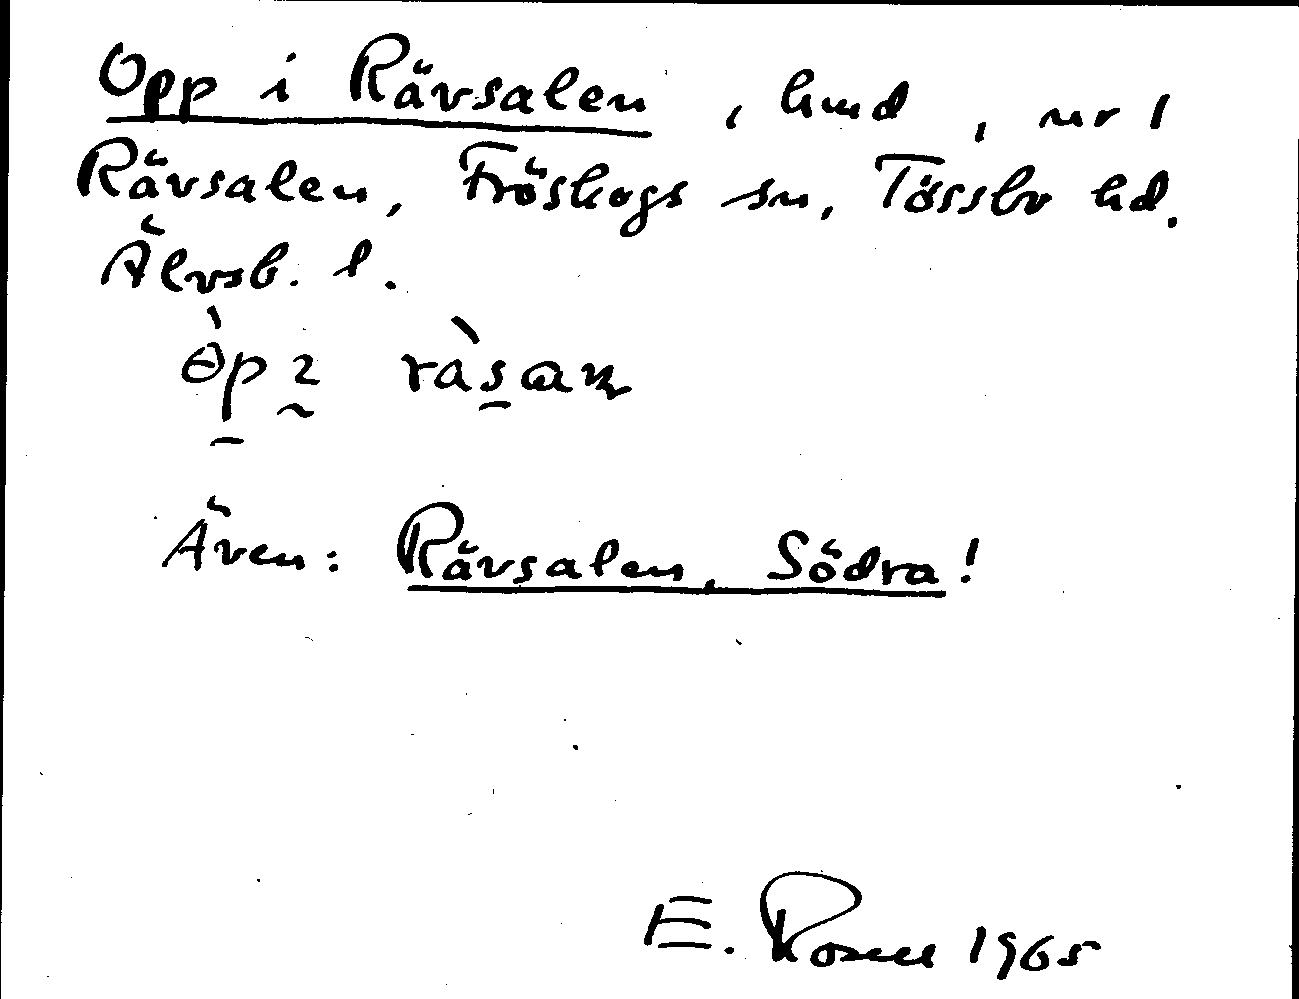 Opp i Rävsalen, hmd, nr 1
Rävsalen, Fröskogs sn, Tössbo hd.
Älvsb. l.
Även: Rävsalen, Södra!
E. Rosell 1965